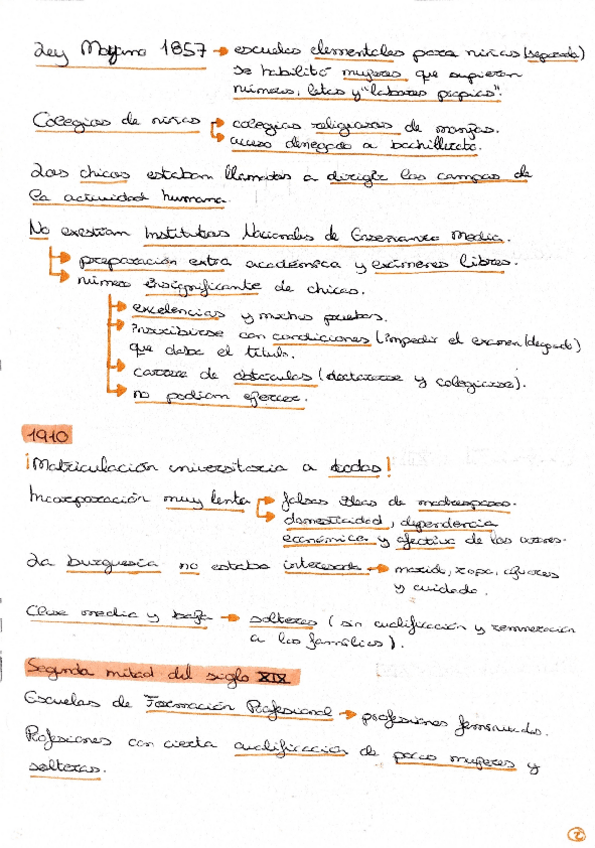 Ley Moyano 1857 → escuelas elementales para niñas (separada)
Se habilitó mujeres que supieran
números, letas y "labores propias".
Colegios de niñas → colegios religiosos de monjas.
→ acceso denegado a bachillerato.
Los chicos estaban llamados a dirigir los campos de
la actividad humana.
No existían Institutos Nacionales de Enseñanza Media.
→ preparación extra académica y exámenes libres.
→ número insignificante de chicas.
→ excelencias y muchas pruebas.
→ inscribirse con condiciones (impedir el examen/degrado)
que daba el título.
→ carrera de obstáculos (doctorarse y colegiarse).
→ no podían ejercer.
1910
¡Matriculación universitaria a todas!
Incorporación muy lenta → falsas ideas de
→ domesticidad, dependencia
económica y afectiva de los varones.
La burguesía no estaba interesada → marido, ropa, ajuares
y cuidado.
Clase media y baja → solteras (sin cualificación y remuneración
a las familias).
Segunda mitad del siglo XIX
Escuelas de Formación Profesional → profesiones feminizadas.
Profesiones con cierta cualificación de pocas mujeres y
solteras.
2